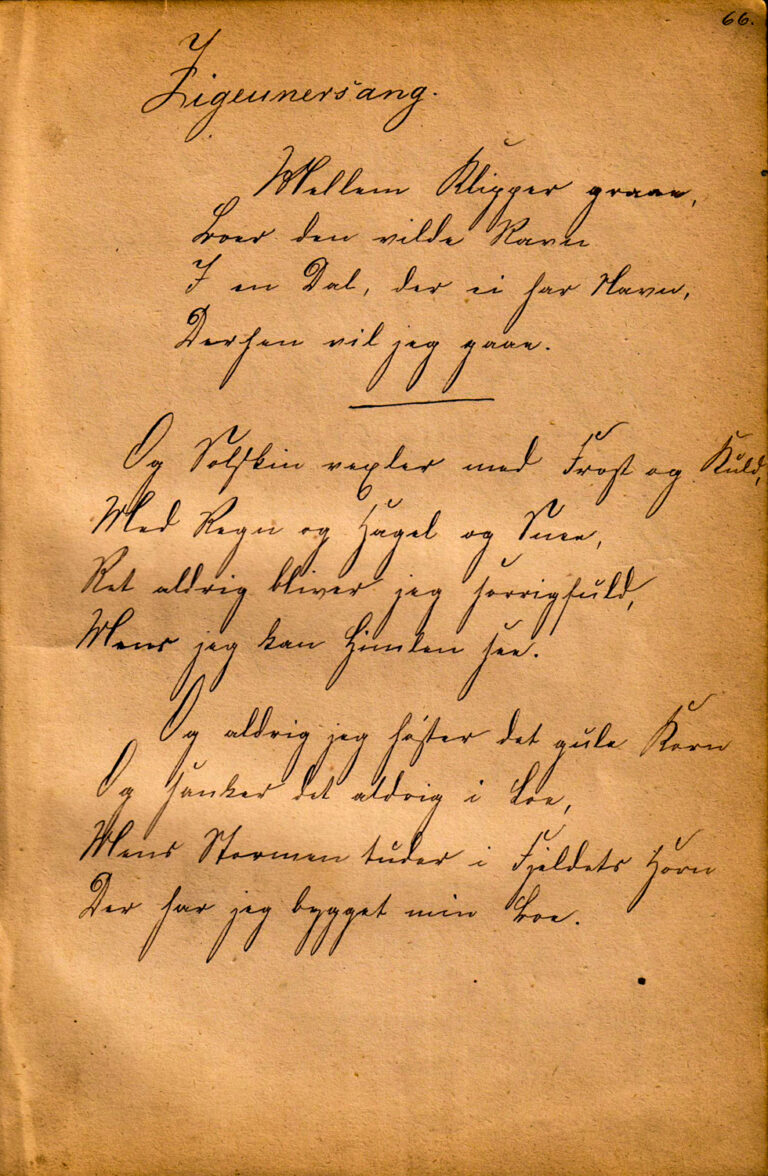 66.
Zigeunersang.
Mellem Klipper graae,
Boer den vilde Ravn
I en Dal, der ei har Navn,
Derhen vil jeg gaae.
Og Solskin vexler med Frost og Kuld,
Med Regn og Hagel og Snee,
Ret aldrig bliver jeg sorrigfuld,
Mens jeg kan Himlen see.
Og aldrig jeg høster det gule Korn
Og sanker det aldrig i Loe,
Mens Stormen tuder i Fjeldets Horn
Der har jeg bygget min Boe.